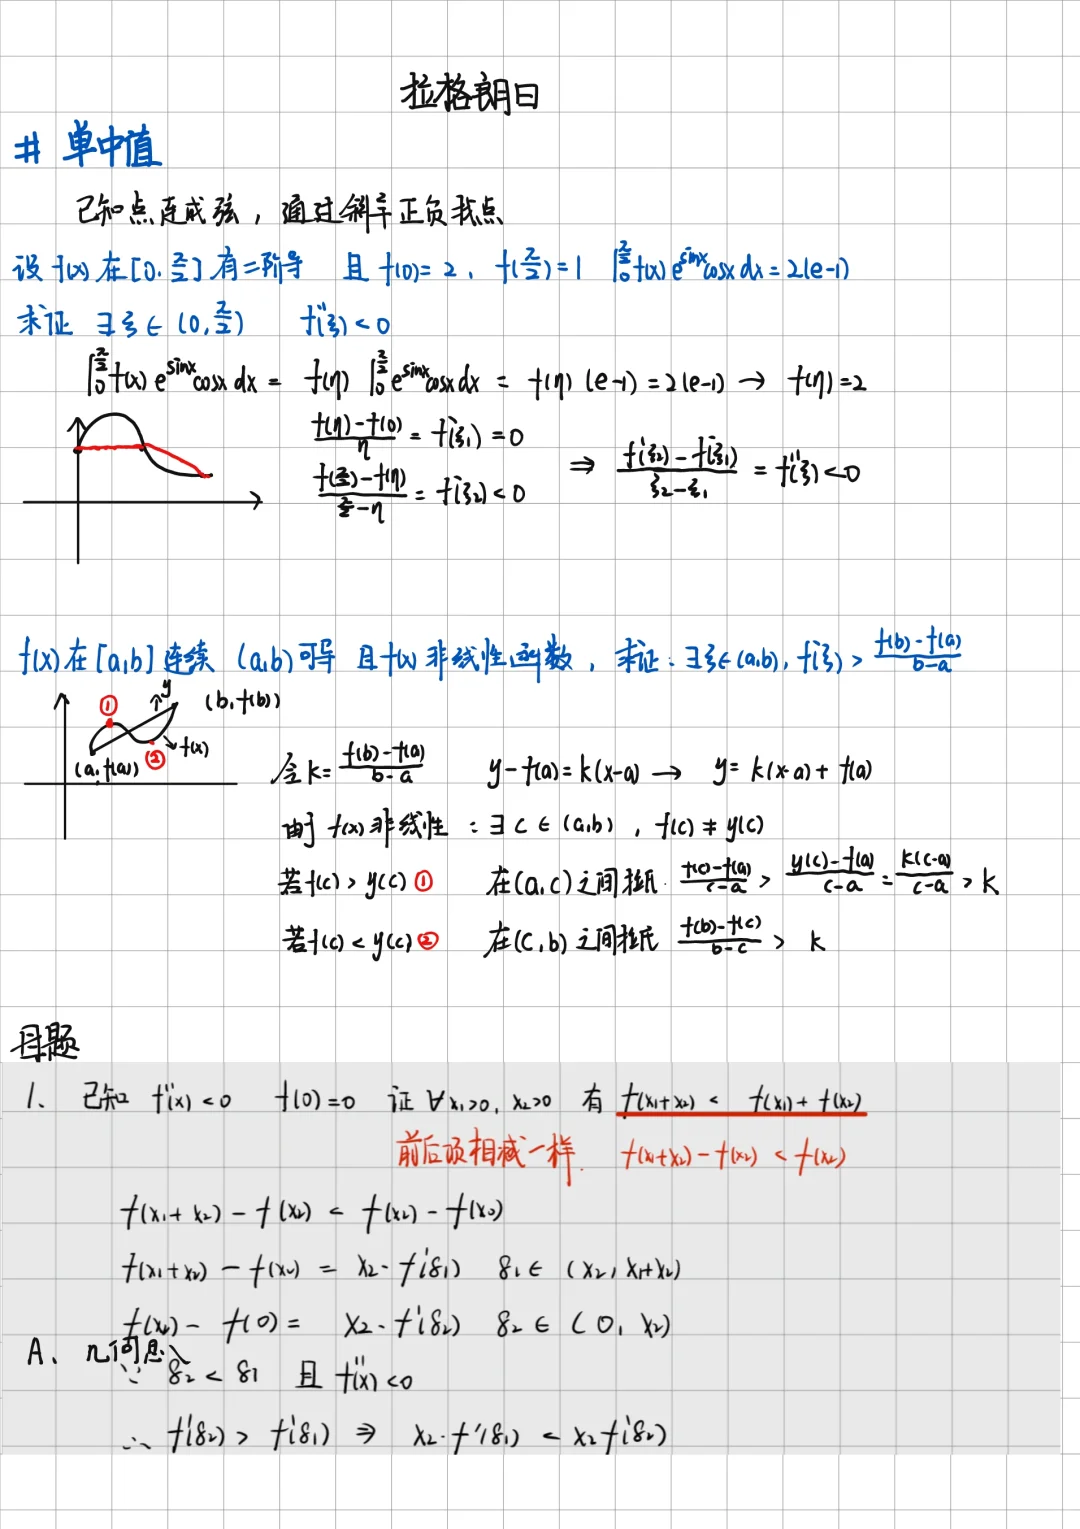 拉格朗日
# 单中值
已知点连成弦，通过斜率正负找点
设 f(x) 在 [0, π/2] 有二阶导 且 f(0)=2, f(π/2)=1 ∫₀^{π/2} f(x) e^{sinx} cosx dx = 2(e-1)
求证 ∃ ξ ∈ (0, π/2) f''(ξ) < 0
∫₀^{π/2} f(x) e^{sinx} cosx dx = f(η) ∫₀^{π/2} e^{sinx} cosx dx = f(η) (e-1) = 2(e-1) → f(η) = 2
(f(η) - f(0))/η = f'(ξ₁) = 0
(f(π/2) - f(η))/(π/2 - η) = f'(ξ₂) < 0
⇒ (f'(ξ₂) - f'(ξ₁))/(ξ₂ - ξ₁) = f''(ξ) < 0
f(x) 在 [a,b] 连续 (a,b) 可导 且 f(x) 非线性函数, 求证: ∃ ξ ∈ (a,b), f'(ξ) > (f(b) - f(a))/(b-a)
① y (b, f(b))
(a, f(a)) ② f(x)
令 k = (f(b) - f(a))/(b-a) y - f(a) = k(x-a) → y = k(x-a) + f(a)
由于 f(x) 非线性 : ∃ c ∈ (a,b), f(c) ≠ y(c)
若 f(c) > y(c) ① 在 (a,c) 之间拉氏 (f(c) - f(a))/(c-a) > (y(c) - f(a))/(c-a) = k(c-a)/(c-a) > k
若 f(c) < y(c) ② 在 (c,b) 之间拉氏 (f(b) - f(c))/(b-c) > k
母题
1、 已知 f''(x) < 0 f(0)=0 证 ∀ x₁>0, x₂>0 有 f(x₁+x₂) < f(x₁) + f(x₂)
前后项相减一样. f(x₁+x₂) - f(x₂) < f(x₂)
f(x₁+x₂) - f(x₂) < f(x₂) - f(x₀)
f(x₁+x₂) - f(x₂) = x₂·f'(ξ₁) ξ₁ ∈ (x₂, x₁+x₂)
f(x₂) - f(0) = x₂·f'(ξ₂) ξ₂ ∈ (0, x₂)
A、 几何意义
∵ ξ₂ < ξ₁ 且 f''(x) < 0
∴ f'(ξ₂) > f'(ξ₁) ⇒ x₂·f'(ξ₁) < x₂f'(ξ₂)